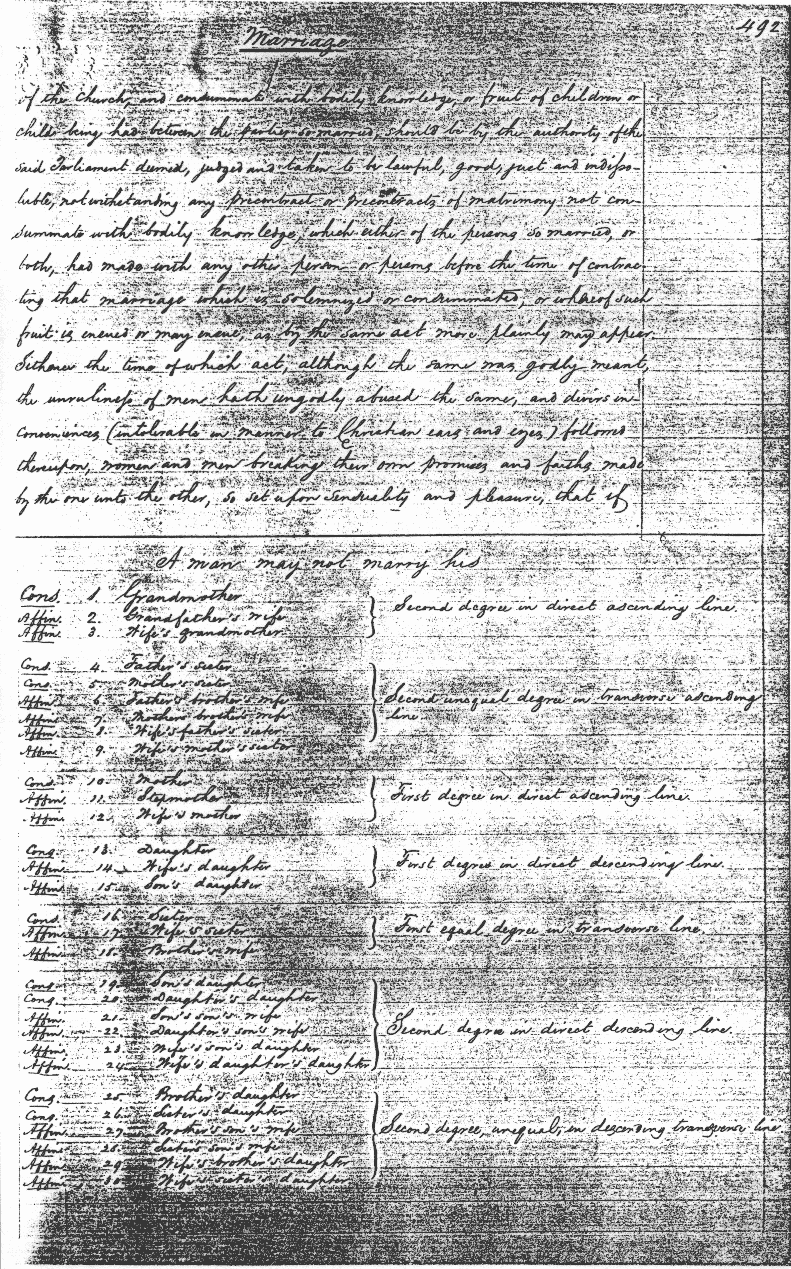 492
Marriage
of the Church, and consummate with bodily knowledge, or fruit of children or
child being had between the parties so married, should be by the authority of the
said Parliament deemed, judged and taken to be lawful, good, just and indisso-
luble, notwithstanding any precontract or precontracts of matrimony not con-
summate with bodily knowledge, which either of the persons so married, or
both, had made with any other person or persons before the time of contrac-
ting that marriage which is solemnized or consummated, or whereof such
fruit is ensued or may ensue, as by the same act more plainly may appear
Sithence the time of which act, although the same was godly meant,
the unruliness of men hath ungodly abused the same, and divers in-
conveniences (intolerable in manner to Christian ears and eyes) followed
thereupon, women and men breaking their own promises and faiths made
by the one unto the other, so set upon sensuality and pleasure, that if
A man may not marry his
Cons. 1. Grandmother
Affin. 2. Grandfather's wife
Affin. 3. Wife's grandmother
Second degree in direct ascending line.
Cons. 4. Father's sister
Cons. 5. Mother's sister
Affin. 6. Father's brother's wife
Affin. 7. Mother's brother's wife
Affin. 8. Wife's father's sister
Affin. 9. Wife's mother's sister
Second unequal degree in transverse ascending
line.
Cons. 10. Mother
Affin. 11. Stepmother
Affin. 12. Wife's mother
First degree in direct ascending line.
Cons. 13. Daughter
Affin. 14. Wife's daughter
Affin. 15. Son's daughter
First degree in direct descending line.
Cons. 16. Sister
Affin. 17. Wife's sister
Affin. 18. Brother's wife
First equal degree in transverse line.
Cons. 19. Son's daughter
Cons. 20. Daughter's daughter
Affin. 21. Son's son's wife
Affin. 22. Daughter's son's wife
Affin. 23. Wife's son's daughter
Affin. 24. Wife's daughter's daughter
Second degree in direct descending line.
Cons. 25. Brother's daughter
Cons. 26. Sister's daughter
Affin. 27. Brother's son's wife
Affin. 28. Sister's son's wife
Affin. 29. Wife's brother's daughter
Affin. 30. Wife's sister's daughter
Second degree, unequal, in descending transverse line